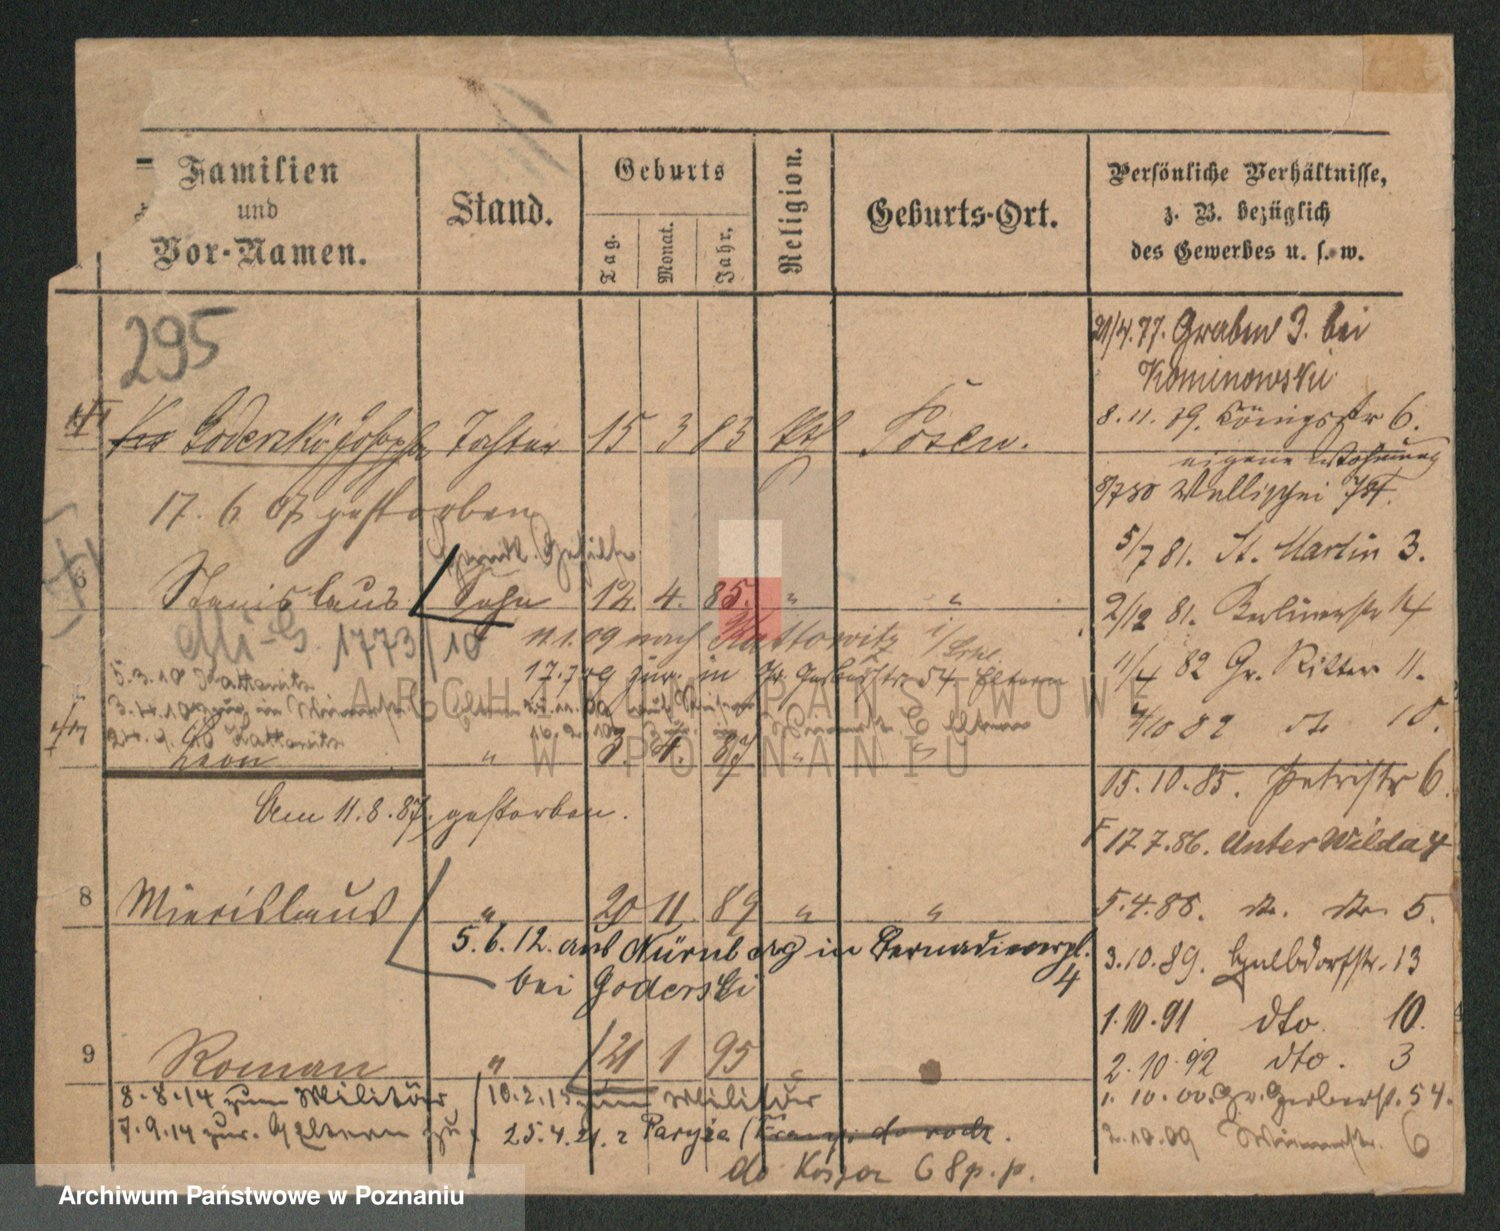 Familien
und
Vor-Namen.
Stand.
Geburts
Tag.
Monat.
Jahr.
Religion.
Geburts-Ort.
Persönliche Verhältnisse,
z. B. bezüglich
des Gewerbes u. s. w.
295
21/4.77. Graben 3. bei
Kominowski
8.11.79. Königsstr 6.
eigene Wohnung
8/7 80 Wallischei
Goderski Josepha Tochter 15 3 83 Posen.
17. 6. 07 gestorben
5/7 81. St. Martin 3.
6 Stanislaus Sohn 12. 4. 85. " "
2/12 81. Berlinerstr 14
1773/10
11.1.09 nach Kattowitz
11/4 82 Gr. Ritter 11.
5.3.10 Kattowitz
17.7.09 zur. in Gr. Gerberstr. 54 Eltern
4/10 82 dt. 10.
Leon " 3. 4. 87 " "
15.10.85. Petristr 6.
Am 11.8.87. gestorben.
17.7.86. Unter Wilda 4
8 Miecislaus " 20 11 89 " "
5.4.88. dt. dt. 5.
5.6.12. aus Nürnberg in Bernadinerpl. 4
bei Goderski
3.10.89. Halbdorfstr. 13
1.10.91 dto. 10.
9 Roman " 21 1 95 "
2.10.92 dto. 3
8.8.14 zum Militär
10.2.15 zum Militär
1.10.00. Gr. Gerberst. 54.
7.9.14 zur. Eltern
25.4.21. z Paryża
2.10.09 6
do Koszar 68 p. p.
ARCHIWUM PAŃSTWOWE
W POZNANIU
Archiwum Państwowe w Poznaniu